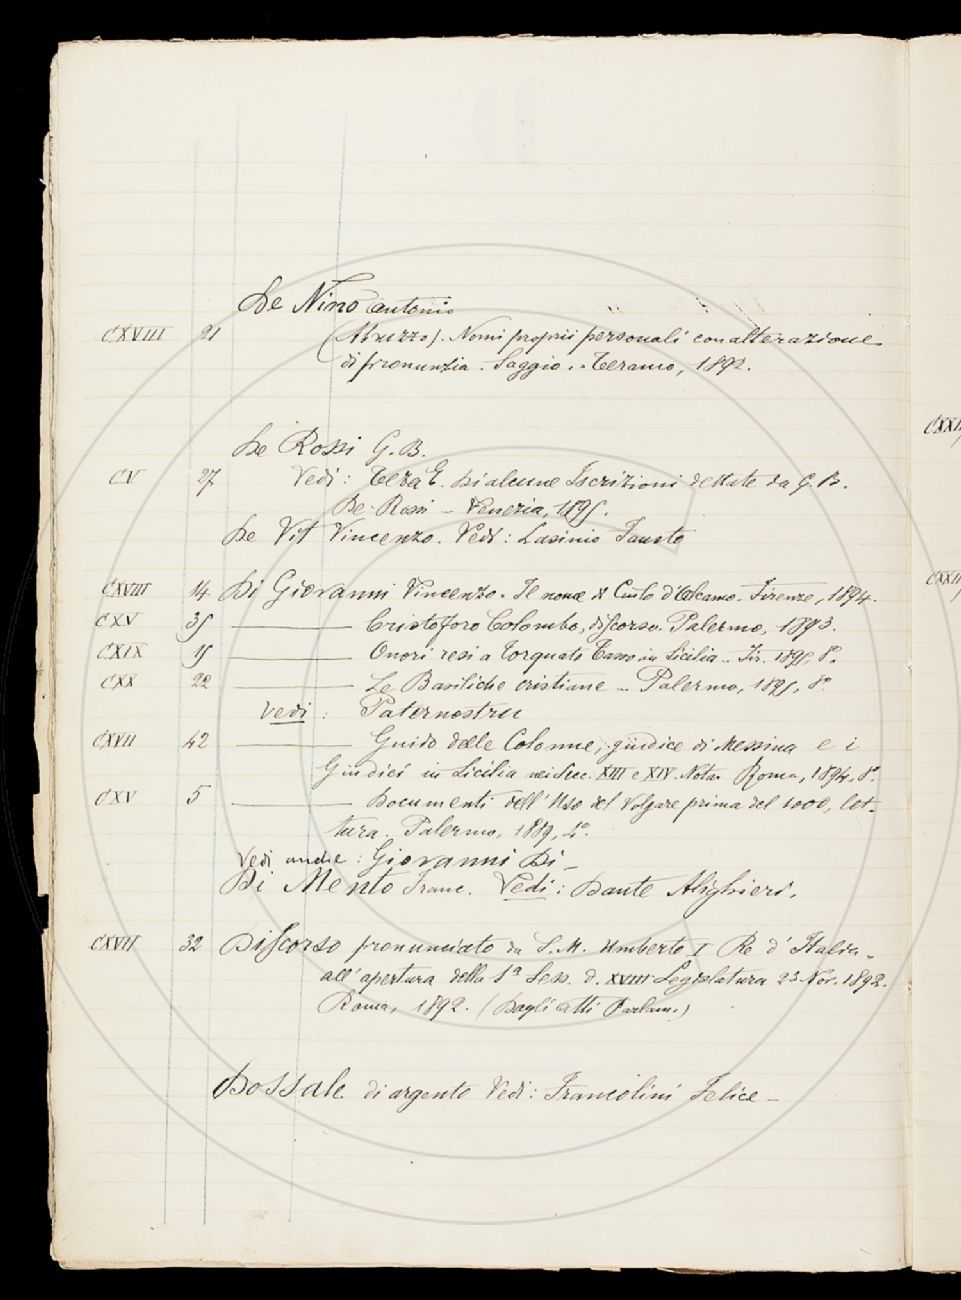 De Nino Antonio
CXVIII 21 (Abruzzo). Nomi proprii personali con alterazione
di pronunzia. Saggio. - Teramo, 1892.
De Rossi G. B.
CV 27 Vedi: Teza E. Di alcune Iscrizioni dettate da G. B.
De-Rossi - Venezia, 1895.
De Vit Vincenzo. Vedi: Lasinio Fausto
CXVIII 14 Di Giovanni Vincenzo. Il nome di Ciullo d'Alcamo. Firenze, 1894.
CXV 35 Cristoforo Colombo, discorso. Palermo, 1893.
CXIX 15 Onori resi a Torquato Tasso in Sicilia - Fir. 1895, 8°.
CXX 22 Le Basiliche cristiane - Palermo, 1895, 8°
Vedi: Paternostru
CXVII 42 Guido delle Colonne, giudice di Messina e i
Giudici in Sicilia nei Sec. XIII e XIV. Nota. Roma, 1894, 8°.
CXV 5 Documenti dell'Uso del Volgare prima del 1000, let-
tura. Palermo, 1889, 4°.
Vedi anche: Giovanni Di -
Di Mento Franc. Vedi: Dante Alighieri.
CXVII 32 Discorso pronunciato da S. M. Umberto I Re d'Italia
all'apertura della 1a Sess. d. XVIII Legislatura 23 Nov. 1892.
Roma, 1892. (Dagli Atti Parlam.)
Dossale di argento Vedi: Francolini Felice -
CXXI
CXXII